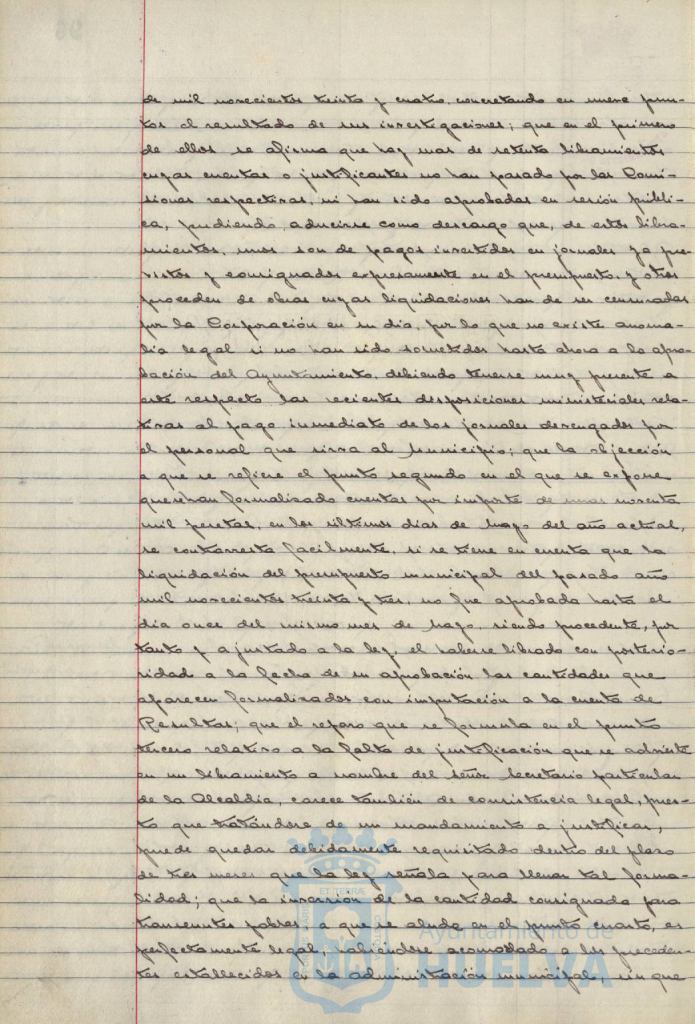 de mil novecientos treinta y cuatro, concretando en nueve pun-
tos el resultado de sus investigaciones; que en el primero
de ellos se afirma que hay mas de setenta libramientos
cuyas cuentas o justificantes no han pasado por las Comi-
siones respectivas, ni han sido aprobadas en sesión públi-
ca, pudiendo aducirse como descargo que, de estos libra-
mientos, unos son de pagos invertidos en jornales ya pre-
vistos y consignados expresamente en el presupuesto, y otros
proceden de obras cuyas liquidaciones han de ser censuradas
por la Corporación en su dia, por lo que no existe anoma-
lia legal si no han sido sometidos hasta ahora a la apro-
bación del Ayuntamiento, debiendo tenerse muy presente a
este respecto las recientes disposiciones ministeriales rela-
tivas al pago inmediato de los jornales devengados por
el personal que sirva al Municipio; que la objección
a que se refiere el punto segundo en el que se expone
que se han formalizado cuentas por importe de unas noventa
mil pesetas, en los últimos dias de Mayo del año actual,
se contrarresta facilmente, si se tiene en cuenta que la
liquidación del presupuesto municipal del pasado año
mil novecientos treinta y tres, no fue aprobada hasta el
dia once del mismo mes de Mayo, siendo procedente, por
tanto y ajustado a la ley, el haberse librado con posterio-
ridad a la fecha de su aprobación las cantidades que
aparecen formalizadas con imputación a la cuenta de
Resultas; que el reparo que se formula en el punto
tercero relativo a la falta de justificación que se advierte
en un libramiento a nombre del señor Secretario particular
de la Alcaldia, carece también de consistencia legal, pues-
to que tratándose de un mandamiento a justificar,
puede quedar debidamente requisitado dentro del plazo
de tres meses que la ley señala para llenar tal forma-
lidad; que la inversión de la cantidad consignada para
transeuntes pobres a que se alude en el punto cuarto, es
perfectamente legal, habiéndose acomodado a los preceden-
tes establecidos en la administración municipal, sin que
Ayuntamiento de
HUELVA